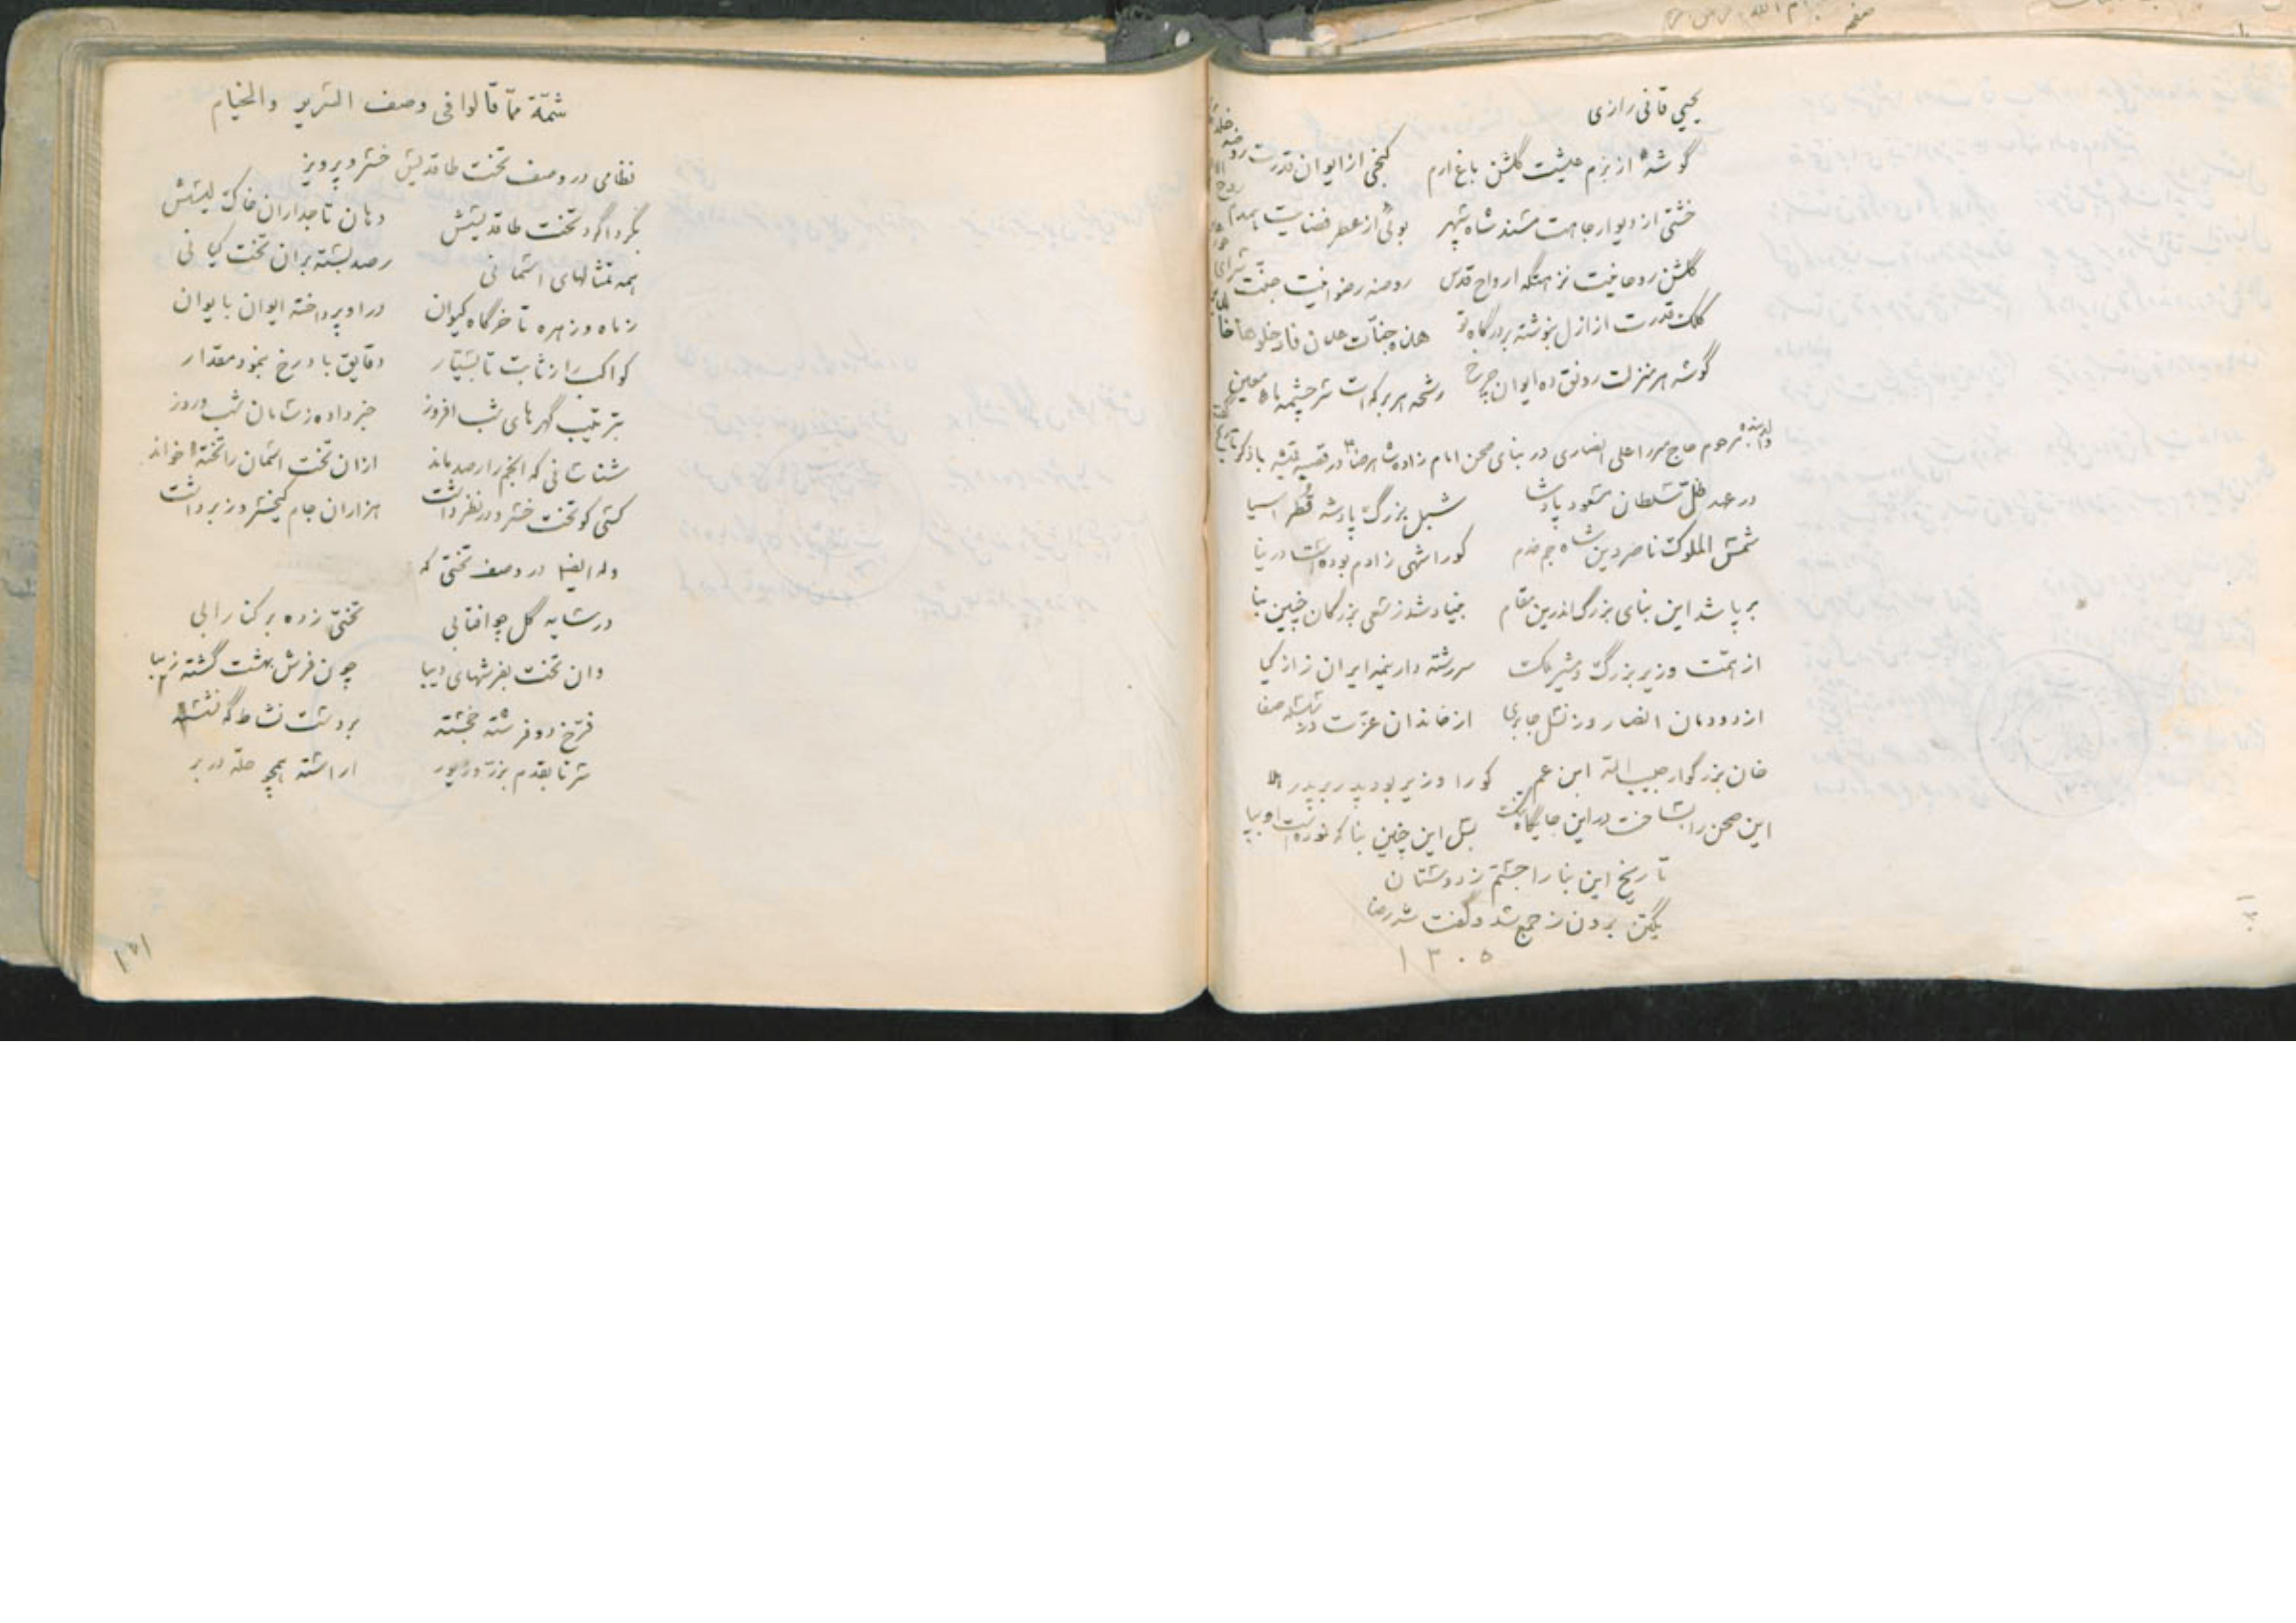 یحیی قانی رازی
گوشهٔ از بزم عیشت گلشن باغ ارم کنجی از ایوان قدرت روضه
خشتی از دیوار جاهت مسند شاه سپهر بوئی از عطر فضایت همدم
گلشن روحانیت نزهتگه ارواح قدس روضه رضوانیت جنّت سرای
کلک قدرت از ازل بنوشته بر درگاه تو هذه جنّات عدن فادخلوها خا
گوشه هر منزلت رونق ده ایوان چرخ رشحه هر برکه‌ات سرچشمه ماء معین
مرحوم حاج میرزا علی انصاری در بنای صحن امام زاده شاهرضا در قصبه قمشه باذکر تاریخ
در عهد ظلّ سلطان مسعود پادشا شبل بزرگ پادشه قطر اسیا
شمس الملوک ناصردین شاه جم خدم کورا شهی زادم بوده است در نیا
برپا شد این بنای بزرگ اندرین مقام بنیاد شد ز سعی بزرگان چنین بنا
از همّت وزیر بزرگ و مشیر ملک سررشته دار نیمه ایران ز ازکیا
از دودمان انصار وز نسل جابری از خاندان عزّت در سلسله صفا
خان بزرگوار حبیب الله ابن عم کورا وزیر بود پدر بر پدر
این صحن را بساخت در این جایگاه بسل این چنین بنا که نموده است او بپا
تاریخ این بنا را جستم ز دوستان
یکتن برون ز جمع شد و گفت شه رضا
۱۳۰۵
شمّة ممّا قالوا فی وصف السّریر والخیام
نظامی در وصف تخت طاقدیس خسرو پرویز
بگرداگرد تخت طاقدیسش دهان تاجداران خاک لیسش
همه تمثالهای اسمانی رصد بسته بران تخت کیانی
ز ماه و زهره تا خرگاه کیوان درا و پرداخته ایوان بایوان
کواکب را ز ثابت تا بسیّار دقایق با درج بنمود مقدار
بترتیب گهرهای شب افروز خبر داده ز ساعات شب و روز
شناسانی که انجم را رصد ماند ازان تخت اسمان را تخته بر خواند
کسی کو تخت خسرو در نظر داشت هزاران جام کیخسرو ز بر داشت
وله ایضا در وصف تختی که
در سایه گل چو افتابی تختی زده بر کنار ابی
وان تخت بفرشهای دیبا چون فرش بهشت گشته زیبا
فرّخ دو فرشته خجسته بر دست نشاط گه نشسته
سر تا بقدم بزرّ و زیور اراسته همچو حلّه در بر
۱۵۱